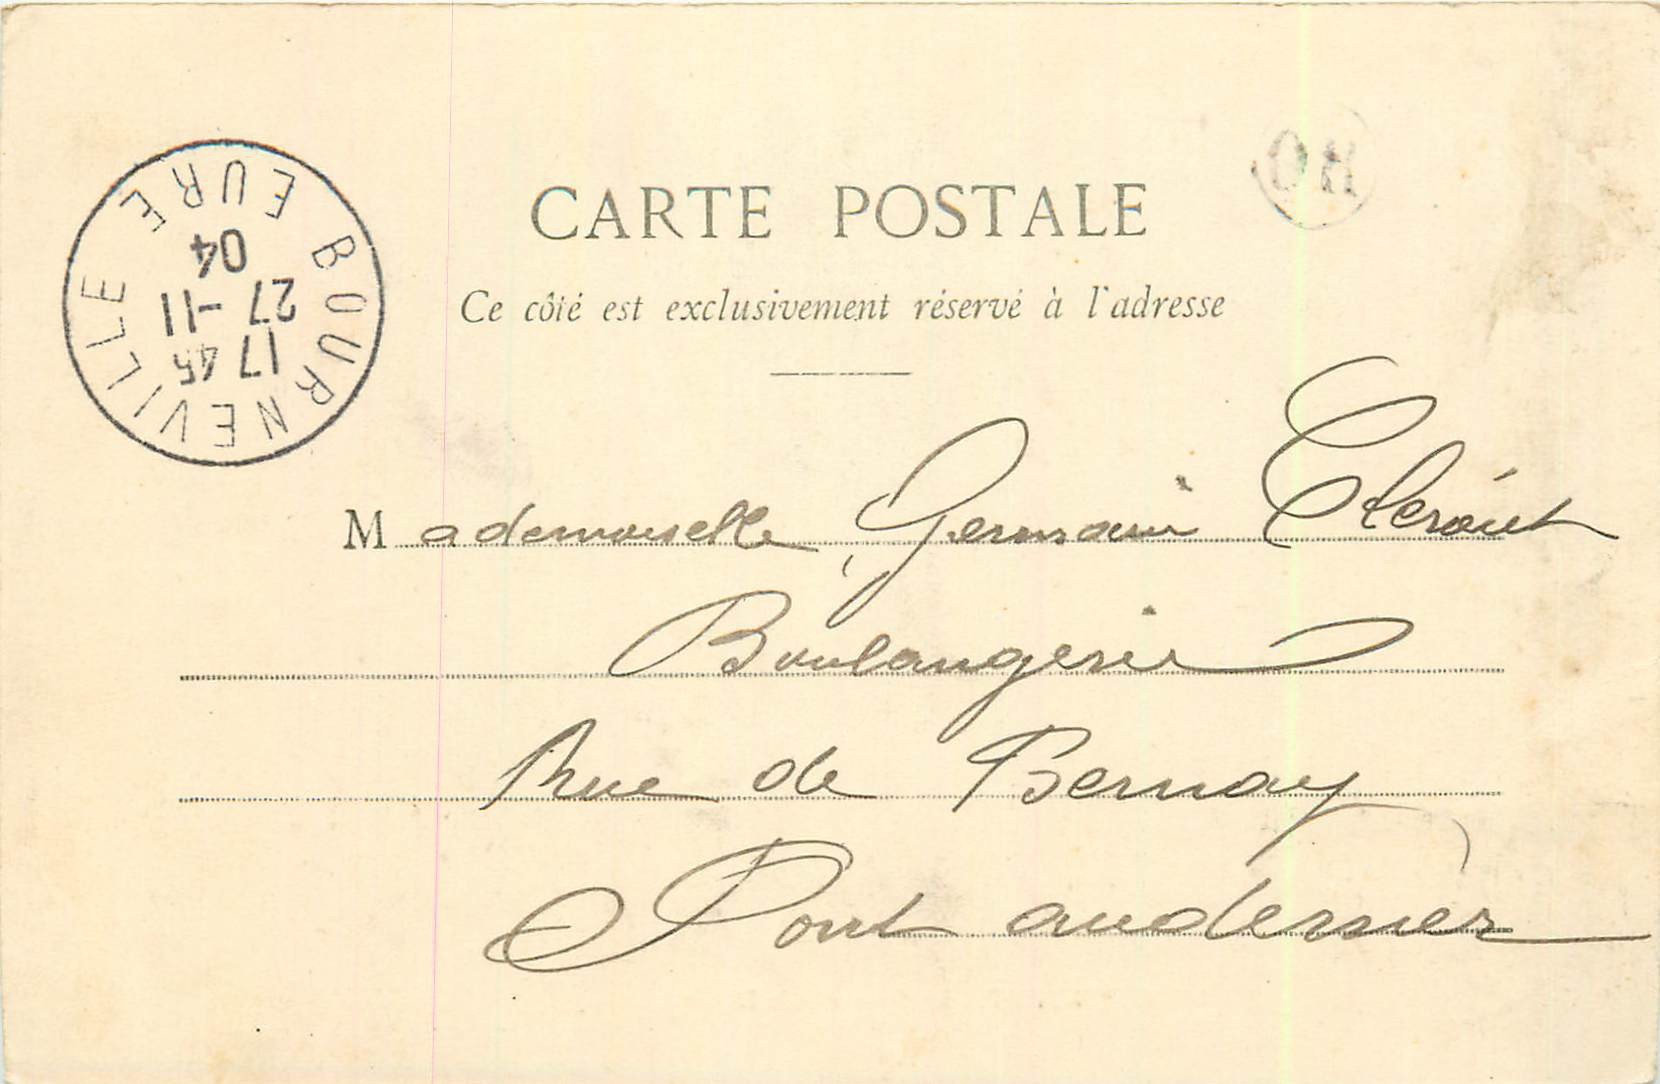 CARTE POSTALE
Ce côté est exclusivement réservé à l'adresse
BOURNEVILLE
EURE
17 45
27 - 11
04
OR
Mademoiselle Germain
Boulangerie
Rue de Bernay
Pont audemer